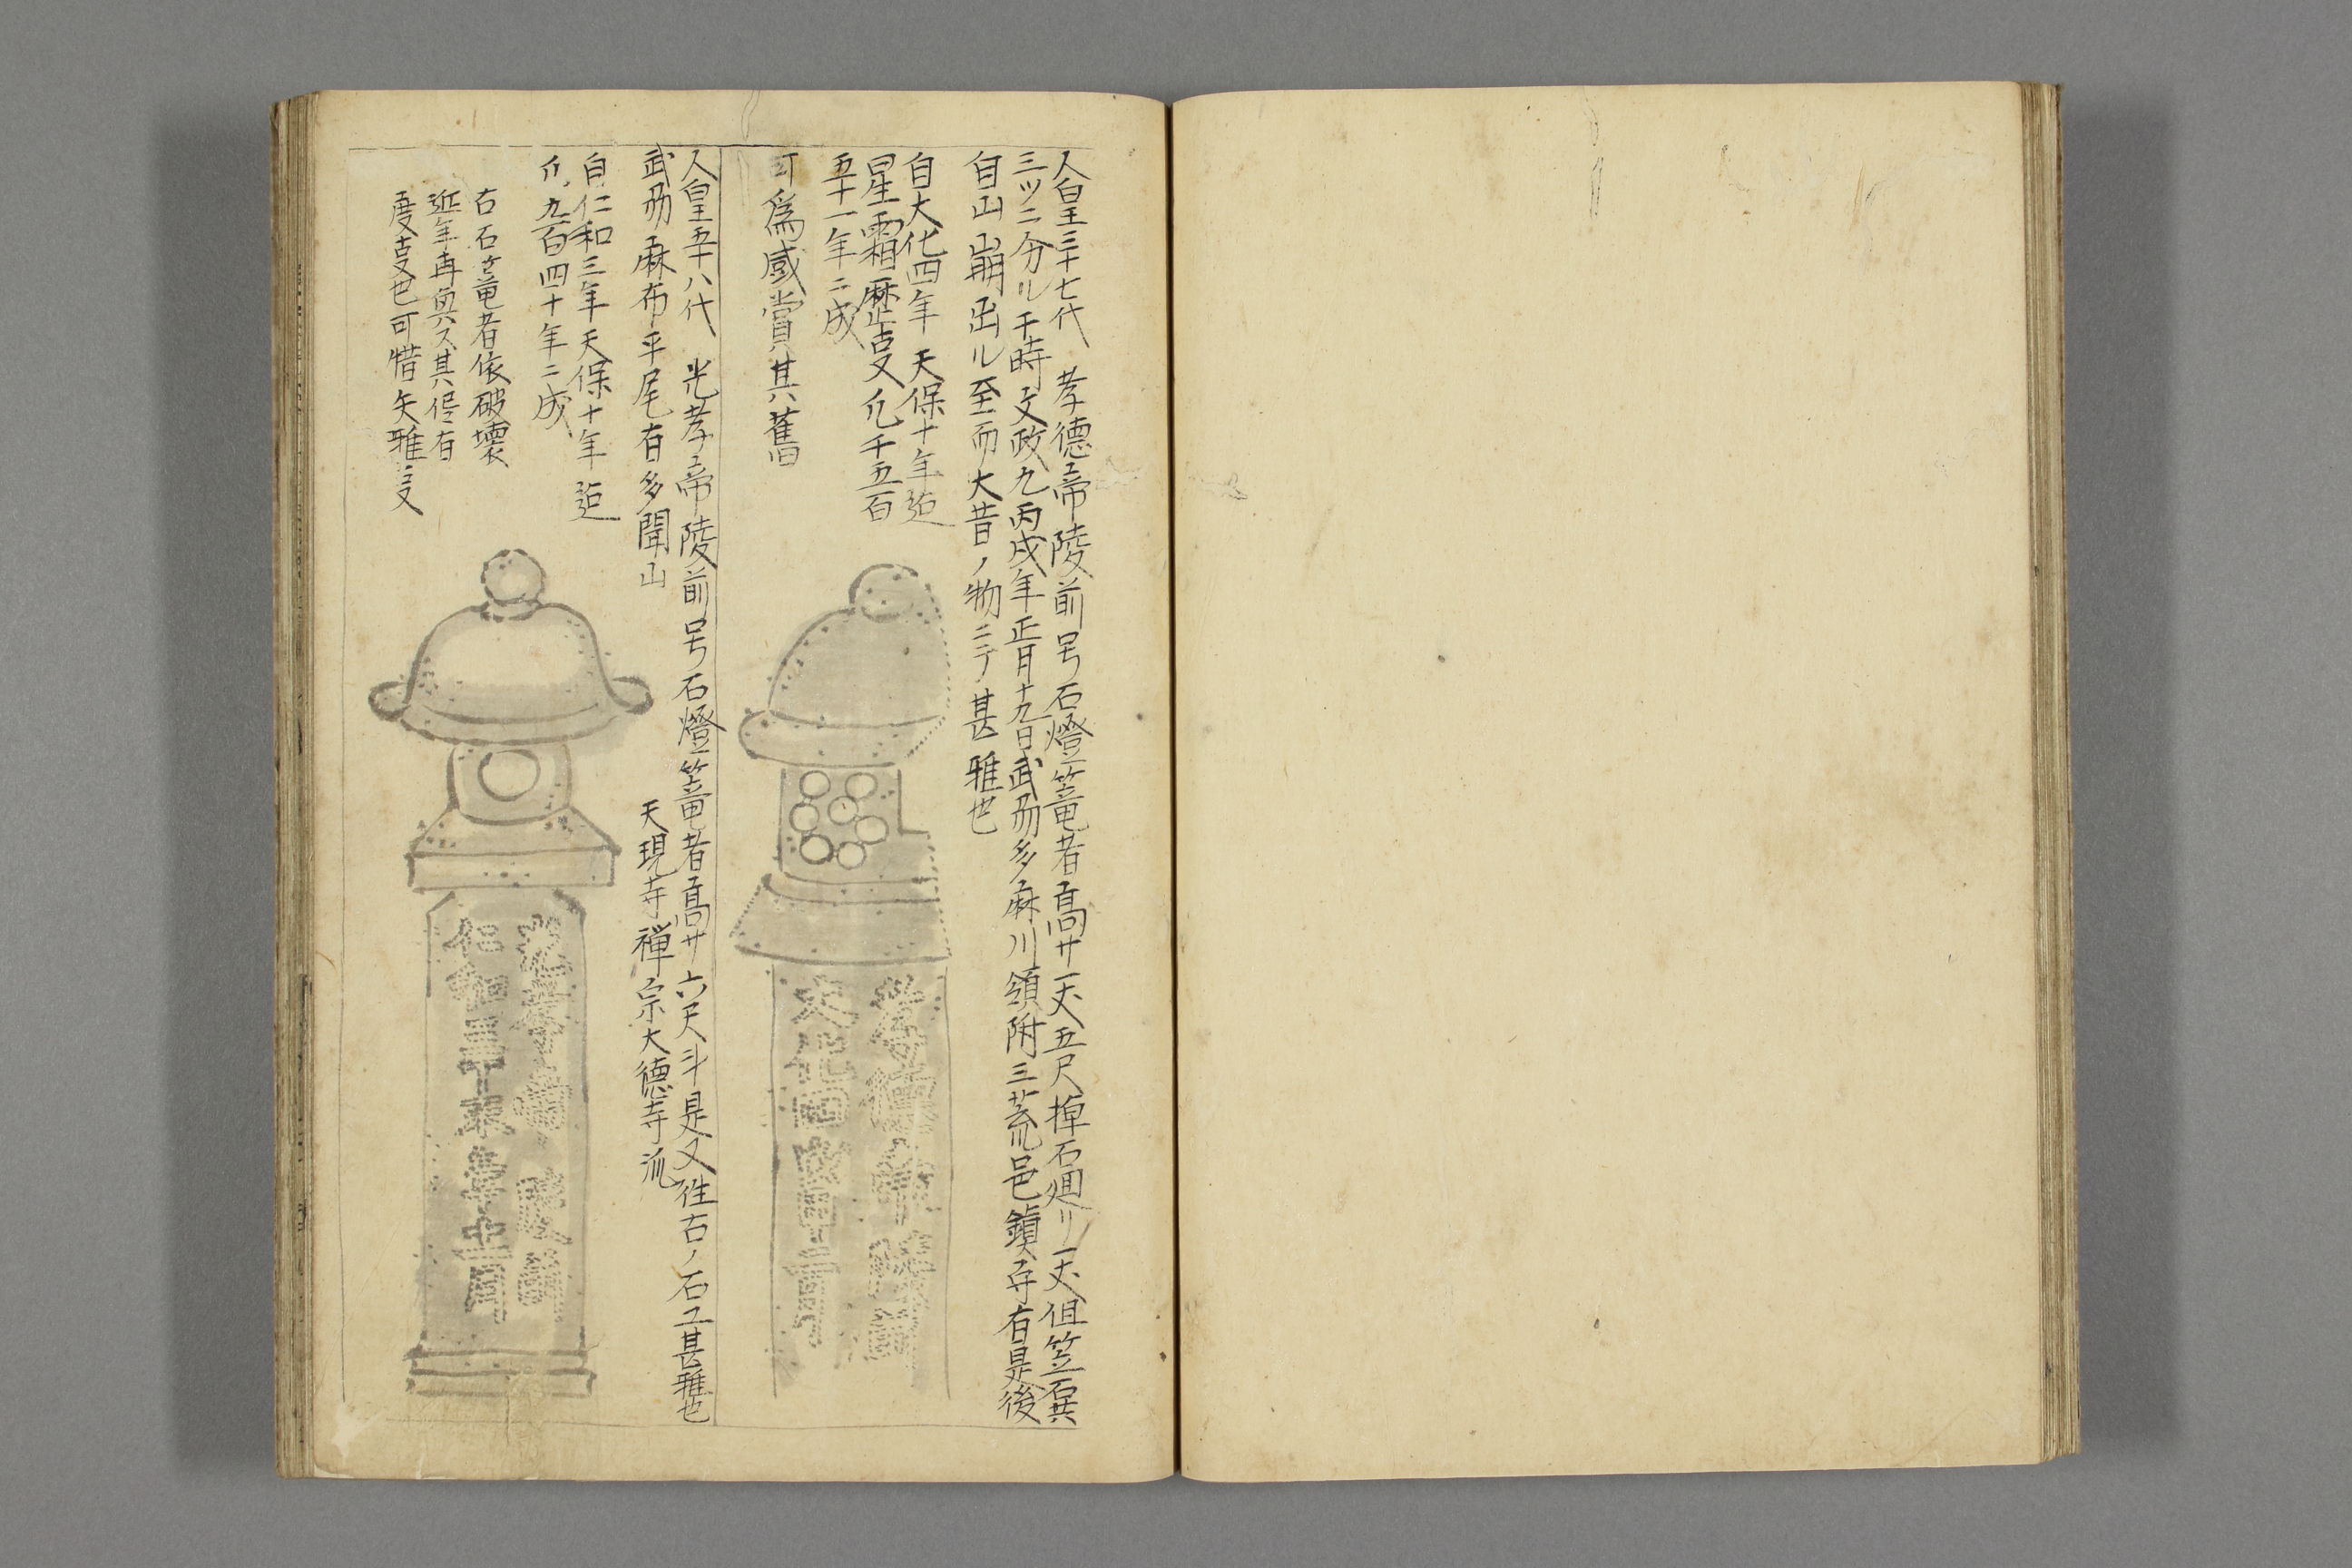 人皇三十七代　孝德帝陵前号石燈篭者高サ一丈五尺捍石廻リ一丈但笠石共
三ツニ分ル于時文政九丙戌年正月十九日武刕多麻川領附三荒邑鎮守有是後
自山崩出ル至而大昔ノ物ニテ甚雅也
自大化四年　天保十年迠
星霜歴㕝又凢千五百
五十一年ニ成
可為感賞其舊
人皇五十八代　光孝帝陵前号石燈篭者高サ六尺斗是又往古ノ石工甚雅也
武刕麻布平尾有多聞山　天現寺禅宗大德寺派
自仁和三年天保十年迠
凢九百四十年ニ成
右石篭者依破壊
近年再興ス其侭有
度㕝也可惜矣雅㕝
孝德帝陵前
大化四
光孝帝陵前
仁和三丁未年十二月